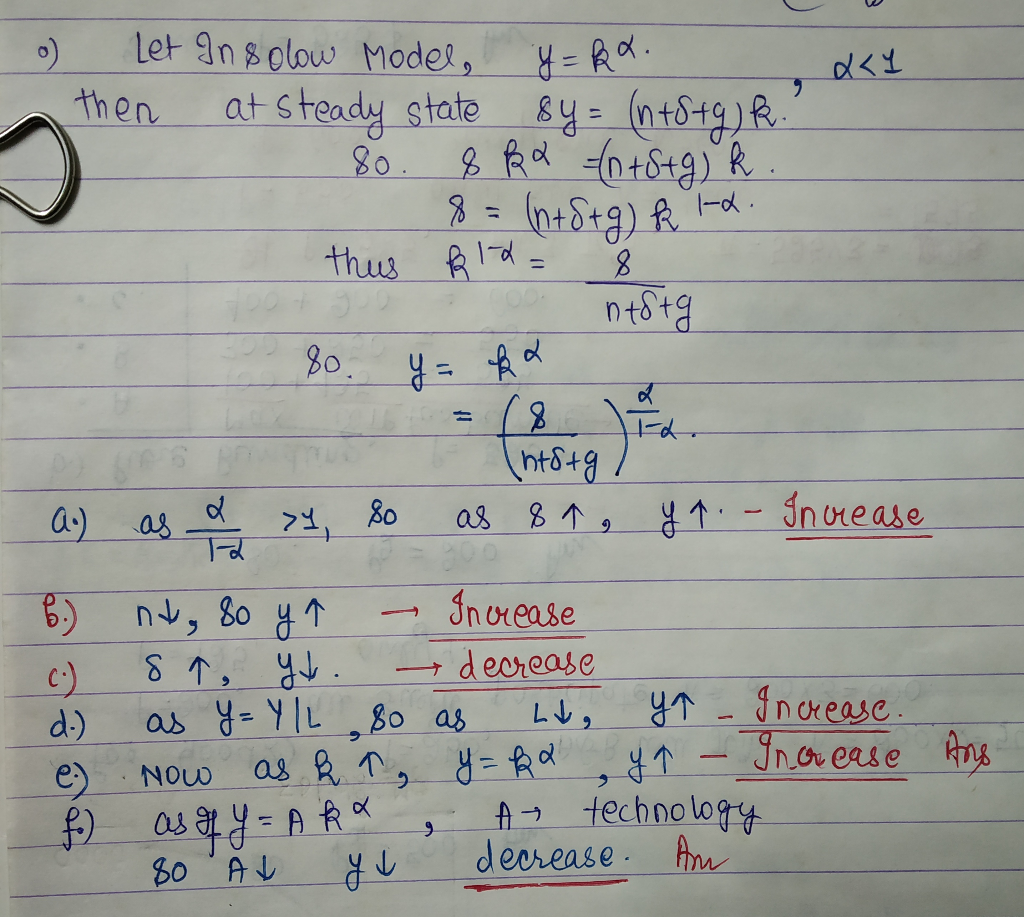 o) Let In solow Model, y = k^α. , α<1
then at steady state sy = (n+δ+g)k.
so. s k^α =(n+δ+g) k.
s = (n+δ+g) k^1-α.
thus k^1-α = s/(n+δ+g)
so. y = k^α
= (s/(n+δ+g))^α/(1-α).
a.) as α/(1-α) >1, so as s ↑, y ↑. - Increase
b.) n↓, so y ↑ → Increase
c.) δ ↑, y↓. → decrease
d.) as y = Y/L, so as L↓, y↑ - Increase.
e.) Now as k ↑, y = k^α, y↑ - Increase Ans
f.) as if y = A k^α, A → technology
so A↓ y ↓ decrease. Ans